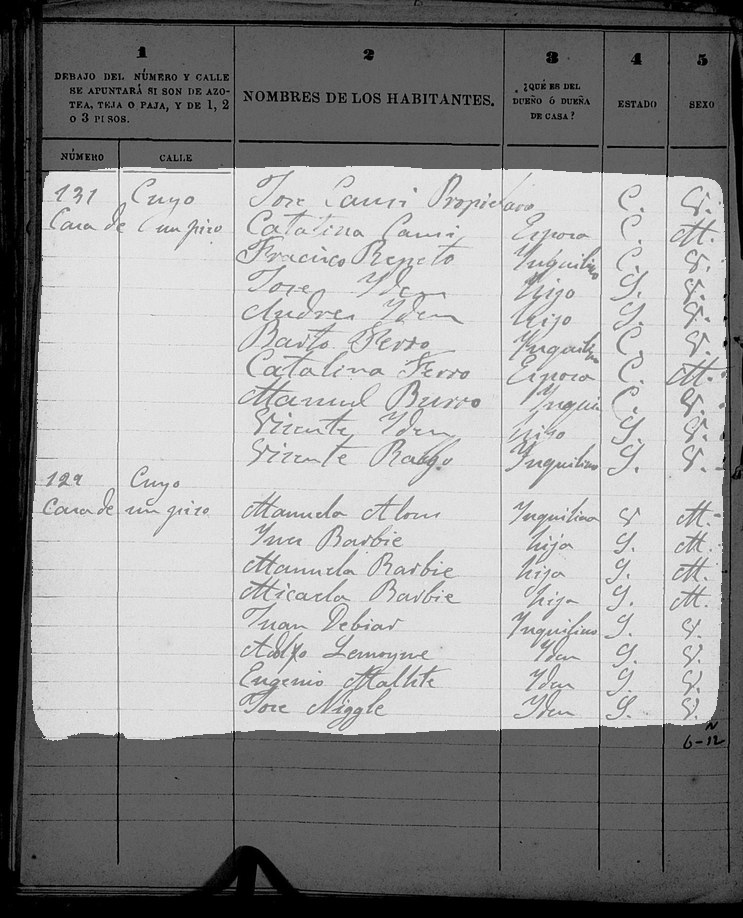 1 2 3 4 5
DEBAJO DEL NÚMERO Y CALLE
SE APUNTARÁ SI SON DE AZO-
TEA, TEJA O PAJA, Y DE 1, 2
O 3 PISOS.
NOMBRES DE LOS HABITANTES.
¿QUÉ ES DEL
DUEÑO Ó DUEÑA
DE CASA?
ESTADO
SEXO
NÚMERO CALLE
131 Cuyo Jose Propietario C. V.
Casa de un piso Catalina Esposa C. M.
Repeto Inquilino C. V.
Jose Ydem hijo S. V.
Andres Ydem hijo S. V.
Barto Ferro Inquilino C. V.
Catalina Ferro Esposa C. M.
Manuel Burro Inquil C. V.
Vicente Ydem hijo S. V.
Vicente Inquilino S. V.
129 Cuyo
Casa de un piso Manuela Inquilina V M.
Ines Barbie hija S. M.
Manuela Barbie hija S. M.
Micaela Barbie hija S. M.
Juan Debiar Inquilino S. V.
Adolfo Lemoyne Ydem S. V.
Eugenio Ydem S. V.
Jose Niggle Ydem S. V.
N
6-12